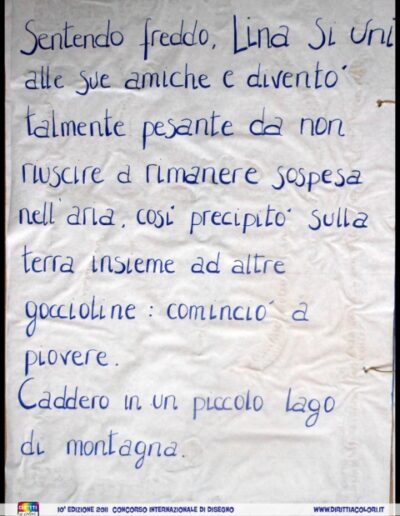 Sentendo freddo, Lina si unì
alle sue amiche e diventò
talmente pesante da non
riuscire a rimanere sospesa
nell'aria, così precipitò sulla
terra insieme ad altre
goccioline: cominciò a
piovere.
Caddero in un piccolo lago
di montagna.
10ª EDIZIONE 2011 CONCORSO INTERNAZIONALE DI DISEGNO
WWW.DIRITTIACOLORI.IT